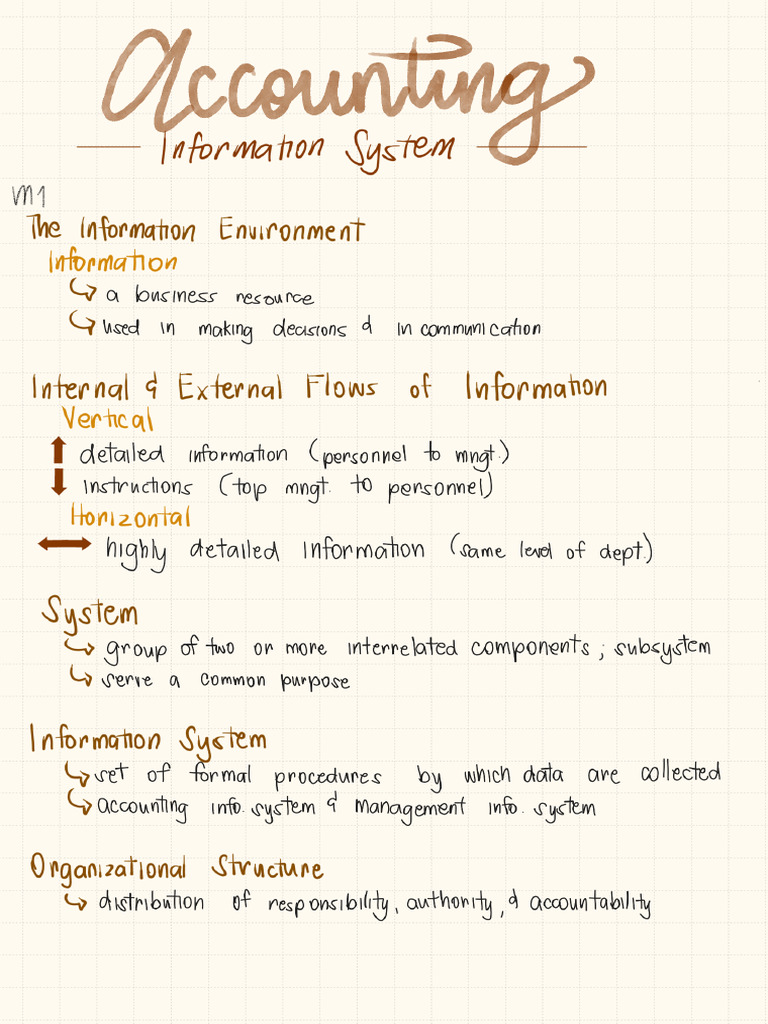 Accounting
Information System
M1
The Information Environment
Information
a business resource
used in making decisions & in communication
Internal & External Flows of Information
Vertical
detailed information (personnel to mngt.)
instructions (top mngt. to personnel)
Horizontal
highly detailed information (same level of dept.)
System
group of two or more interrelated components; subsystem
serve a common purpose
Information System
set of formal procedures by which data are collected
accounting info. system & management info. system
Organizational Structure
distribution of responsibility, authority, & accountability